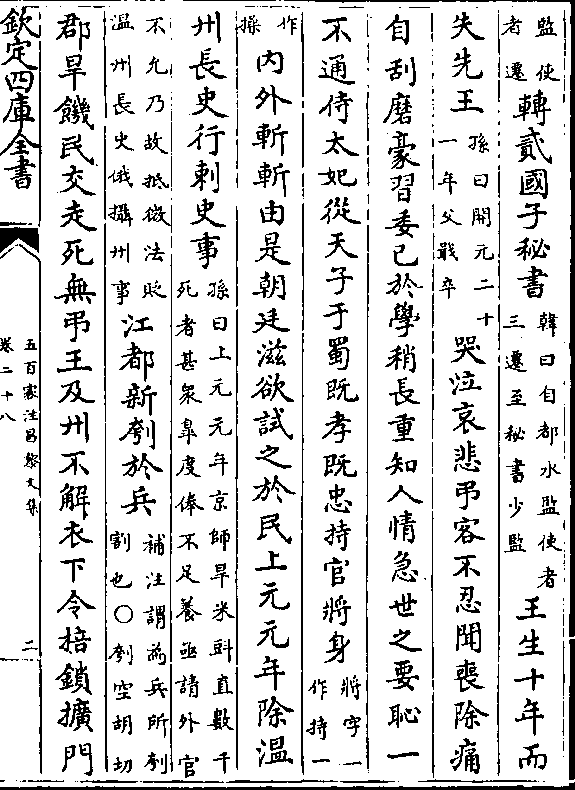 監使者遷轉貳國子秘書韓曰自都水監使者三遷至秘書少監王生十年而
失先王孫曰開元二十一年父戢卒哭泣哀悲弔客不忍聞喪除痛
自刮磨豪習委已於學稍長重知人情急世之要恥一
不通侍太妃從天子于蜀既孝既忠持官將身將字一作持一
作操内外斬斬由是朝廷滋欲試之於民上元元年除温
州長史行刺史事孫曰上元元年京師旱米㪷直數千死者甚衆臯度俸不足養亟請外官
不允乃故抵微法貶温州長史俄攝州事江都新刳於兵補注謂為兵所刳割也○刳空胡切
郡旱饑民交走死無弔王及州不解衣下令掊鎖擴門
欽定四庫全書
五百家注昌黎文集
卷二十八
二